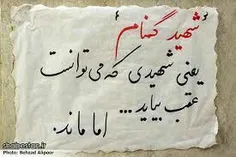 "شهید گمنام"
یعنی شهیدی که می‌توانست
عقب بیاید... اما ماند.
shabestan.ir
Photo: Behzad Alipoor